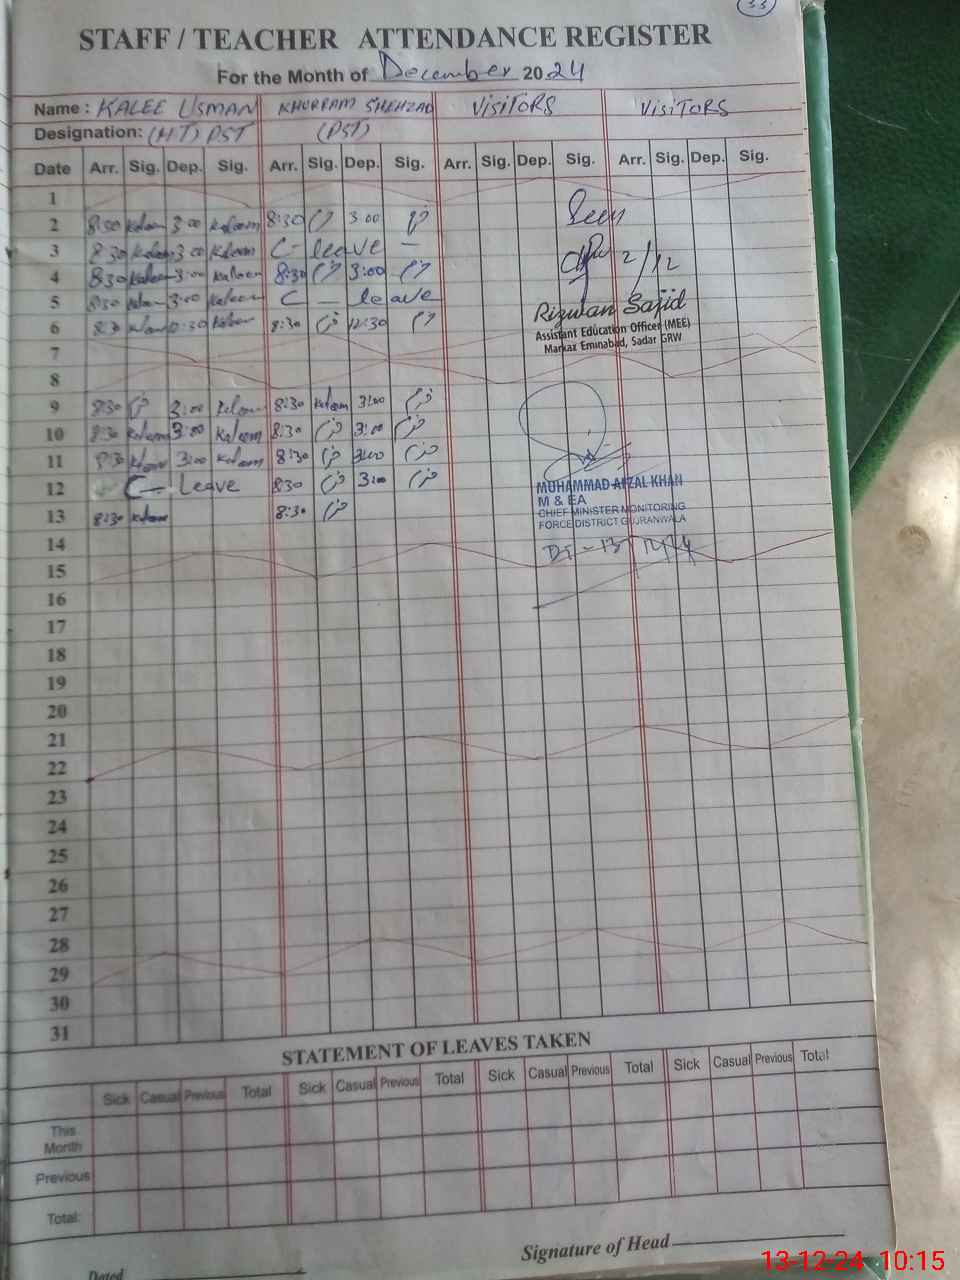 33
STAFF / TEACHER ATTENDANCE REGISTER
For the Month of December 2024
Name : KALEE USMAN KHURRAM SHEHZAD VISITORS VISITORS
Designation: (HT) PST (PST)
Date Arr. Sig. Dep. Sig. Arr. Sig. Dep. Sig. Arr. Sig. Dep. Sig. Arr. Sig. Dep. Sig.
1
2 8:30 Kaleem 3:00 Kaleem 8:30 3:00 Seen
3 8:30 Kaleem 3:00 Kaleem C- leave -
4 8:30 Kaleem 3:00 Kaleem 8:30 3:00 2/12
5 8:30 Kaleem 3:00 Kaleem C - leave
Rizwan Sajid
6 8:30 Kaleem 12:30 Kaleem 8:30 12:30
Assistant Education Officer (MEE)
Markaz Eminabad, Sadar GRW
7
8
9 8:30 3:00 Kaleem 8:30 Kaleem 3:00
10 8:30 Kaleem 3:00 Kaleem 8:30 3:00
11 8:30 Kaleem 3:00 Kaleem 8:30 3:00
12 C- Leave 8:30 3:00
MUHAMMAD AFZAL KHAN
M & EA
13 8:30 Kaleem 8:30
CHIEF MINISTER MONITORING
FORCE DISTRICT GUJRANWALA
14 Dt - 13/12/24
15
16
17
18
19
20
21
22
23
24
25
26
27
28
29
30
31
STATEMENT OF LEAVES TAKEN
Sick Casual Previous Total Sick Casual Previous Total Sick Casual Previous Total Sick Casual Previous Total
This
Month
Previous
Total:
Signature of Head
Dated
13-12-24 10:15